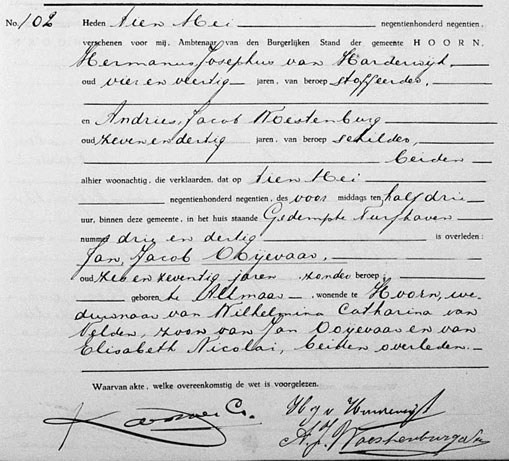 No. 102
Heden tien Mei negentienhonderd negentien,
verschenen voor mij, Ambtenaar van den Burgerlijken Stand der gemeente HOORN,
Hermanus Josephus van Harderwijk,
oud vier en veertig jaren, van beroep stoffeerder,
en Andries Jacob Koestenburg
oud zeven en dertig jaren, van beroep schilder,
beiden
alhier woonachtig, die verklaarden, dat op tien Mei
negentienhonderd negentien, des voor middags ten half drie
uur, binnen deze gemeente, in het huis staande Gedempte Turfhaven
nummer drie en dertig is overleden:
Jan Jacob Ooijevaar,
oud zes en zeventig jaren zonder beroep,
geboren te Alkmaar, wonende te Hoorn, we-
duwnaar van Wilhelmina Catharina van
Velden, zoon van Jan Ooijevaar en van
Elisabeth Nicolai, beiden overleden.
Waarvan akte, welke overeenkomstig de wet is voorgelezen.
H J v Harderwijk
A. J. Koestenburg